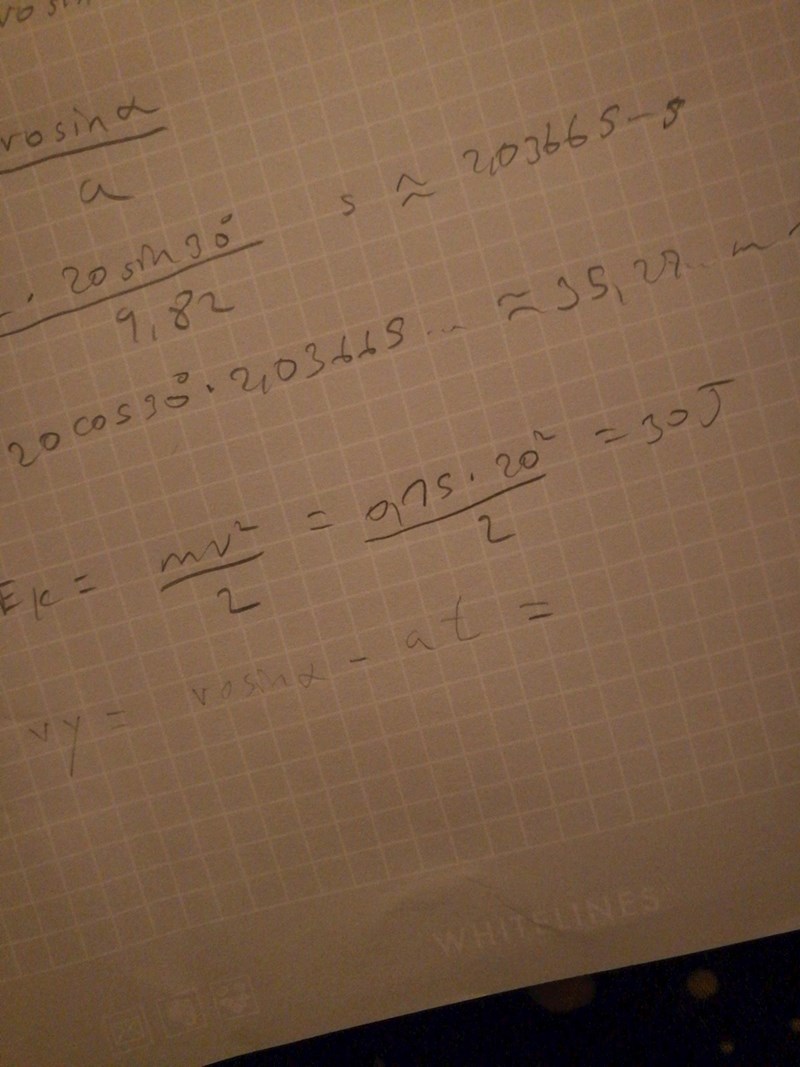 vosin
vosinα
a
· 20 sin 30°
9,82
s ≈ 2,03665 s
20 cos 30° · 2,03665... ≈ 35,27.. m
Ek = mv² / 2 = 0,15 · 20² / 2 = 30 J
vy = vosinα - at =
WHITELINES